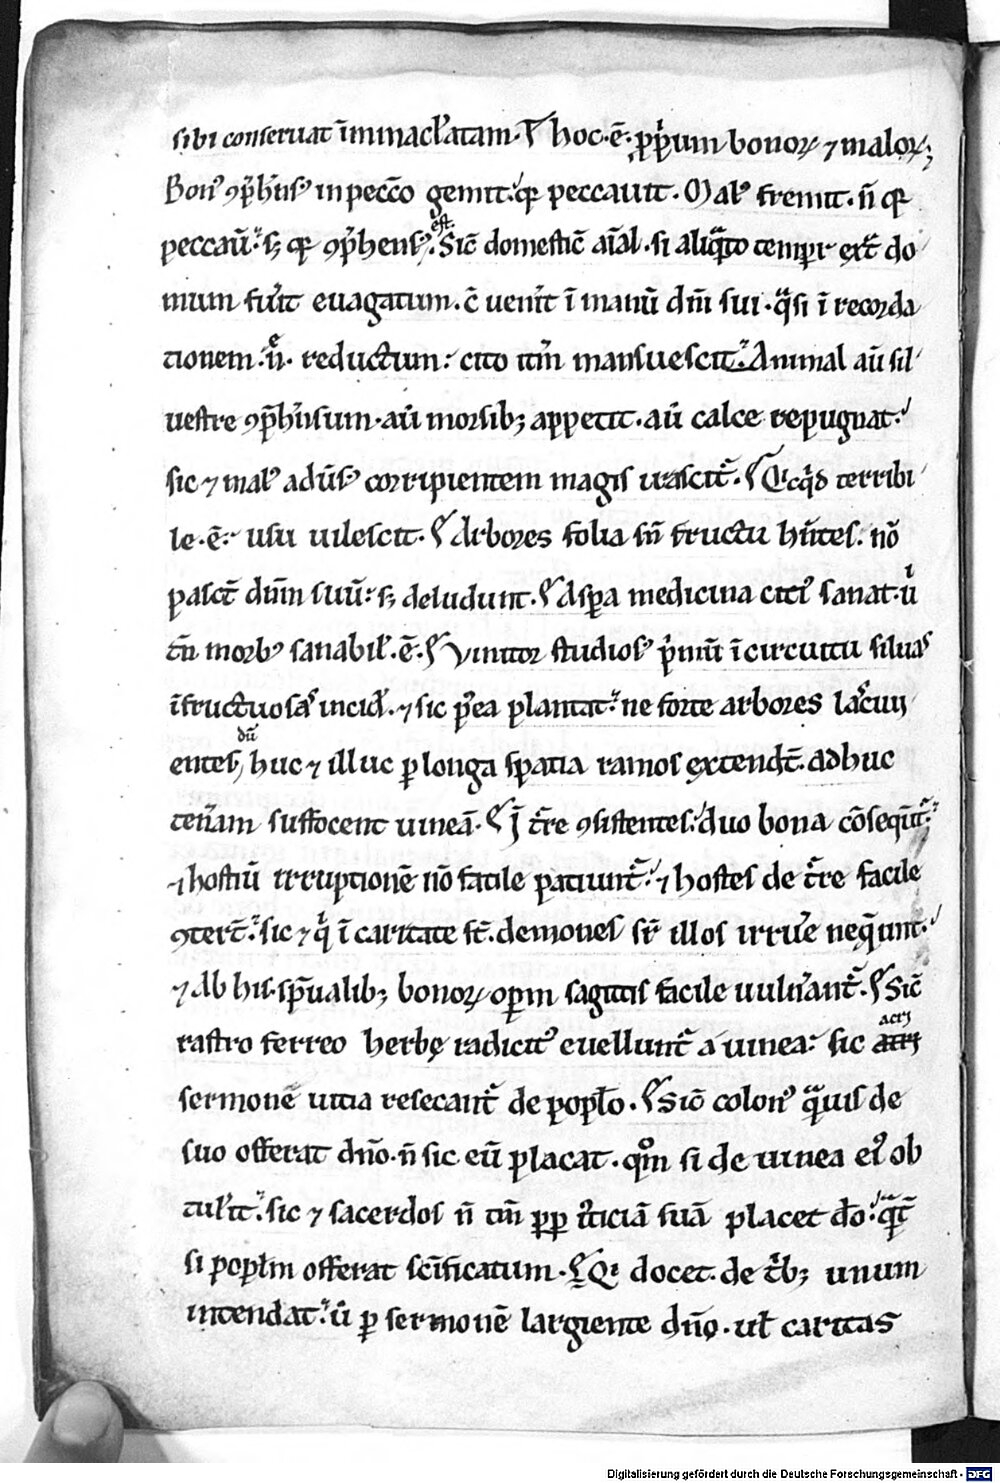 sibi conseruat īmmacl̓atam. ⁊ hoc .ē. ꝓp̓um bonoꝝ ⁊ maloꝝ;
Bon᷒ ꝯp̄hēs᷒ in pecc̄o gemit. qꝛ peccauit. Mal᷒ fremit. n̄ qꝛ
peccau̅. s; qꝛ ꝯp̄hens᷒ est. Sic̄ domestic̄ aīal. si aliqͣdo tempr̄ ext̄ do
mum fu̓it euagatum. c̄ uen̓it ī manū dn̄i sui. qͣsi ī recorda
tionem .n̄. reductum. cito itm̄ mansuescit. Animal aū sil
uestre ꝯp̄hēsum. aū morsib; appetit. aū calce repugnat.
sic ⁊ mal᷒ adūs᷒ corripientem magis irascit᷑. Qicqͥd terribi
le .ē. usu uilescit. Arbores folia sn̄ fructu hn̄tes. nō
pasct̄ dn̄m suū. s; deludunt. Asꝑa medicina citi᷒ sanat. ū
tn̄ morb᷒ sanabil̓ .ē. Vinitor studios᷒ pͥmū ī circuitu siluas
īfructuosas incid̓. ⁊ sic p̓ea plantat. ne forte arbores lac̓uii
entes, dū huc ⁊ illuc ꝑ longa spatia ramos extendt̄. adhuc
ten̓am suffocent uineā. I t̄re ꝯsistentes. duo bona cōsequt̄᷑.
⁊ hostiū irruptionē nō facile patiunt᷑. ⁊ hostes de t̄re facile
ꝯtert̄. sic ⁊ qͥ ī caritate st̄. demones sr̄ illos irru̓e neq̄unt.
⁊ ab his sp̄ualib; bonoꝝ oꝑm sagittis facile uuln̓ant᷑. Sic̄
rastro ferreo herbę radicit᷒ euellunt᷑ a uinea. sic acrj acrj
sermonē uitia resecant᷑ de popl̓o. Sic̄ colon᷒ qͣuis de
suo offerat dn̄o. n̄ sic eū placat. qm̊ si de uinea ei᷒ ob
tul̓it. sic ⁊ sacerdos n̄ tm̄ ꝓp iͥticiā suā placet do̅. qͣt̄
si popl̓m offerat scīficatum. Qi docet. de tͥb; unum
intendat. ū ꝑ sermonē largiente dn̄o. ut̄ caritas